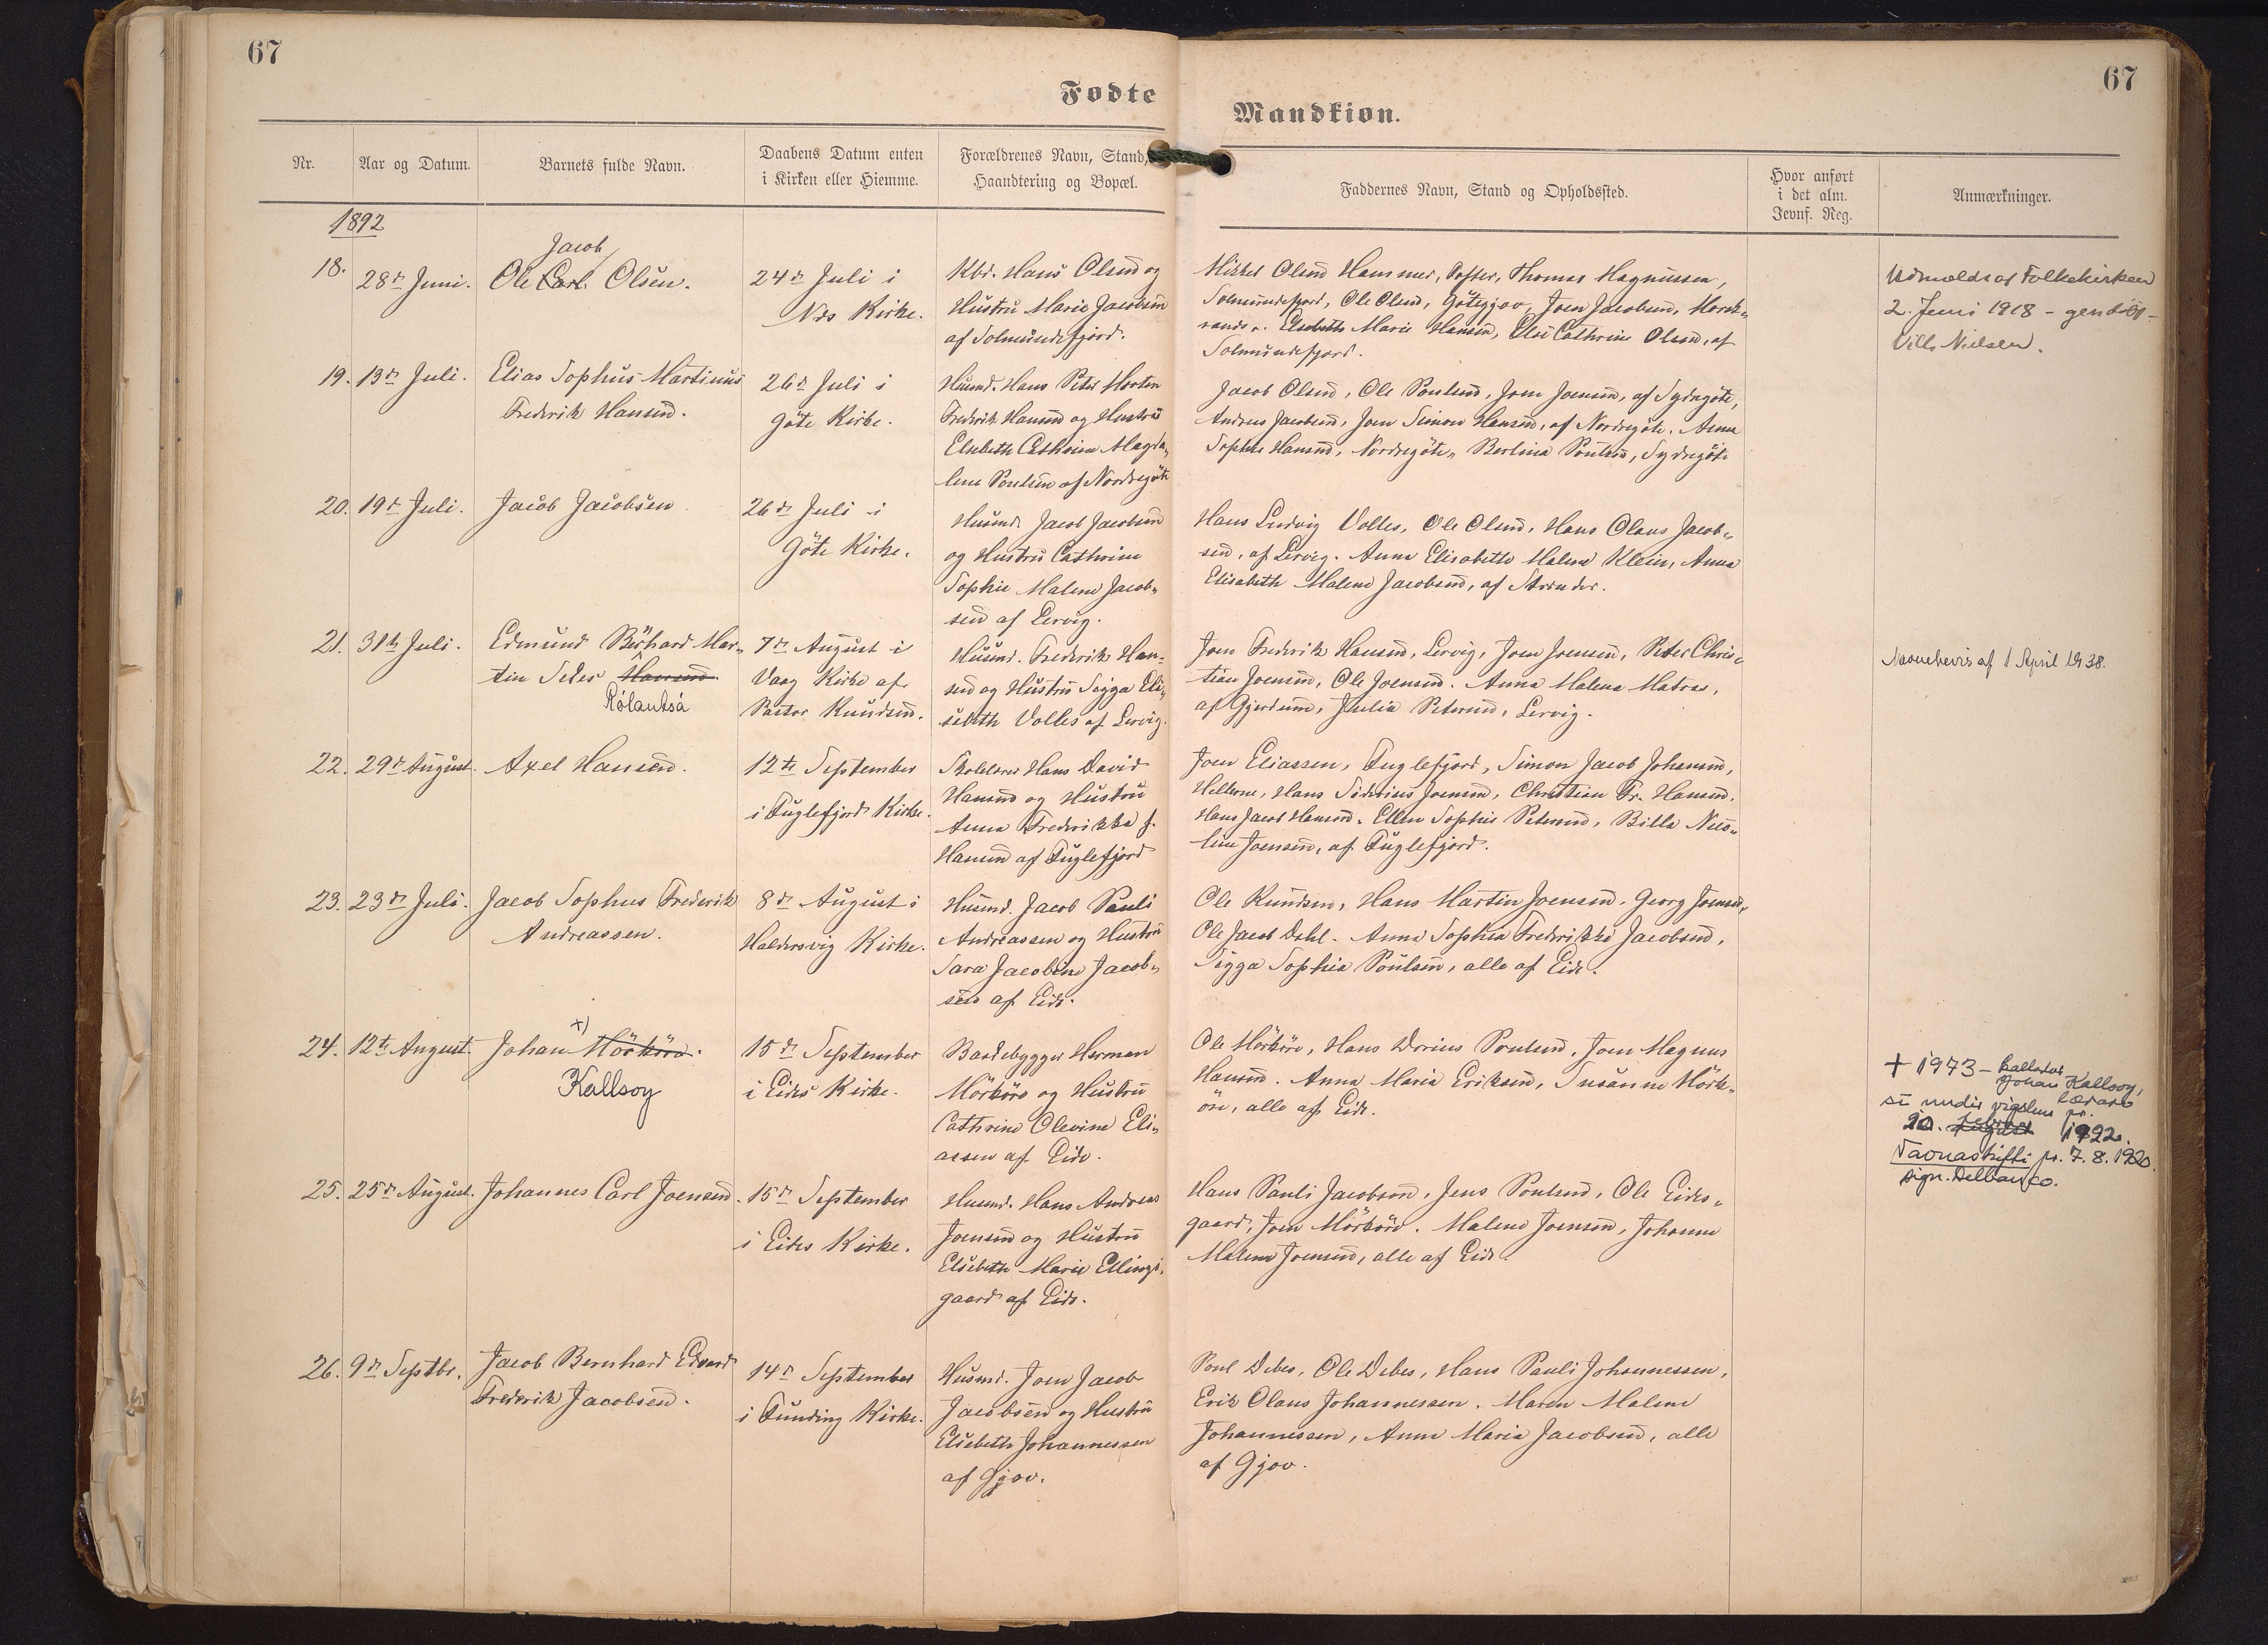 67
67
Fødte
Mandkiøn.
Nr.
Aar og Datum.
Barnets fulde Navn.
Daabens Datum enten
i Kirken eller Hiemme.
Forældrenes Navn, Stand,
Haandtering og Bopæl.
Faddernes Navn, Stand og Opholdssted.
Hvor anført
i det alm.
Jevnf. Reg.
Anmærkninger.
1892
18.
28de Juni.
Jacob
Ole Carl Olsen.
24de Juli i
Næs Kirke.
Kbd. Hans Olsen og
Hustru Marie Jacobsen
af Solmundefjord.
Mikkel Olsen Hammer, Thomas Magnussen,
Solmundefjord, Ole Olsen, Gøtegjov, Joen Jacobsen, Morsk-
ranes. Elsebeth Marie Hansen, Else Cathrine Olsen, af
Solmundefjord.
Udmeldt af Folkekirken
2. Juni 1918 - gendöbt -
Vills Nielsen.
19.
13de Juli.
Elias Sophus Martinus
Frederik Hansen.
26de Juli i
Göte Kirke.
Husmd. Hans Peter Morten
Frederik Hansen og Hustru
Elsebeth Cathrine Magda-
lene Poulsen af Nordregöte
Jacob Olsen, Ole Poulsen, Joen Joensen, af Sydregöte,
Andreas Jacobsen, Joen Simon Hansen, af Nordregöte. Anna
Sophie Hansen, Nordregöte, Berlina Poulsen, Sydregöte
20.
19de Juli.
Jacob Jacobsen
26de Juli i
Göte Kirke.
Husmd. Jacob Jacobsen
og Hustru Cathrine
Sophie Malene Jacob-
sen af Lervig.
Hans Ludvig Volles, Ole Olsen, Hans Olaus Jacob-
sen, af Lervig. Anna Elisabeth Malene Klein, Anna
Elisabeth Malene Jacobsen, af Strender.
21.
31te Juli.
Edmund Bernhard Mar-
tin Peter Hansen
Rólantsá
7de August i
Vaag Kirke af
Pastor Knudsen.
Husmd. Frederik Han-
sen og Hustru Sigga Eli-
sabeth Volles af Lervig.
Joen Frederik Hansen, Lervig, Joen Joensen, Peter Chris-
tian Joensen, Ole Joensen. Anna Malena Matras,
af Gjerdum, Julia Petersen, Lervig.
Navnebevis af 1 April 1938.
22.
29de August.
Axel Hansen.
12te September
i Fuglefjord Kirke.
Skolelærer Hans David
Hansen og Hustru
Anna Frederikka f.
Hansen af Fuglefjord
Joen Eliassen, Fuglefjord, Simon Jacob Johansen,
Hellerne, Hans Joensen, Christian Fr. Hansen,
Hans Jacob Hansen. Ellen Sophie Petersen, Billa Nico-
line Joensen, af Fuglefjord.
23.
23de Juli.
Jacob Sophus Frederik
Andreassen.
8de August i
Haldersvig Kirke.
Husmd. Jacob Pauli
Andreassen og Hustru
Sara Jacobine Jacob-
sen af Eide.
Ole Knudsen, Hans Martin Joensen, Georg Joensen,
Ole Jacob Dahl. Anna Sophia Frederikke Jacobsen,
Sigga Sophia Poulsen, alle af Eide.
24.
12te August.
x)
Johan Mörköre.
Kallsoy
15de September
i Eides Kirke.
Baadebygger Herman
Mörköre og Hustru
Cathrine Olevine Eli-
assen af Eide.
Ole Mörköre, Hans Dorius Poulsen, Joen Magnus
Hansen. Anna Maria Eriksen, Susanne Mörk-
öre, alle af Eide.
+ 1973 - kallaður
Johan Kallsoy,
lærari
sí undir vigslur nr.
20. 1922.
Navnaskifti pr. 7.8.1920.
sign. Delbanco.
25.
25de August.
Johannes Carl Joensen.
15de September
i Eides Kirke.
Husmd. Hans Andreas
Joensen og Hustru
Elsebeth Marie Ellings-
gaard af Eide.
Hans Pauli Jacobsen, Jens Poulsen, Ole Eides-
gaard, Joen Mörköre. Malene Joensen, Johanne
Malene Joensen, alle af Eide.
26.
9de Septbr.
Jacob Bernhard Edvard
Frederik Jacobsen.
14de September
i Funding Kirke.
Husmd. Joen Jacob
Jacobsen og Hustru
Elsebeth Johannessen
af Gjov.
Poul Debes, Ole Debes, Hans Pauli Johannessen,
Erik Olaus Johannessen. Maren Malene
Johannessen, Anna Maria Jacobsen, alle
af Gjov.